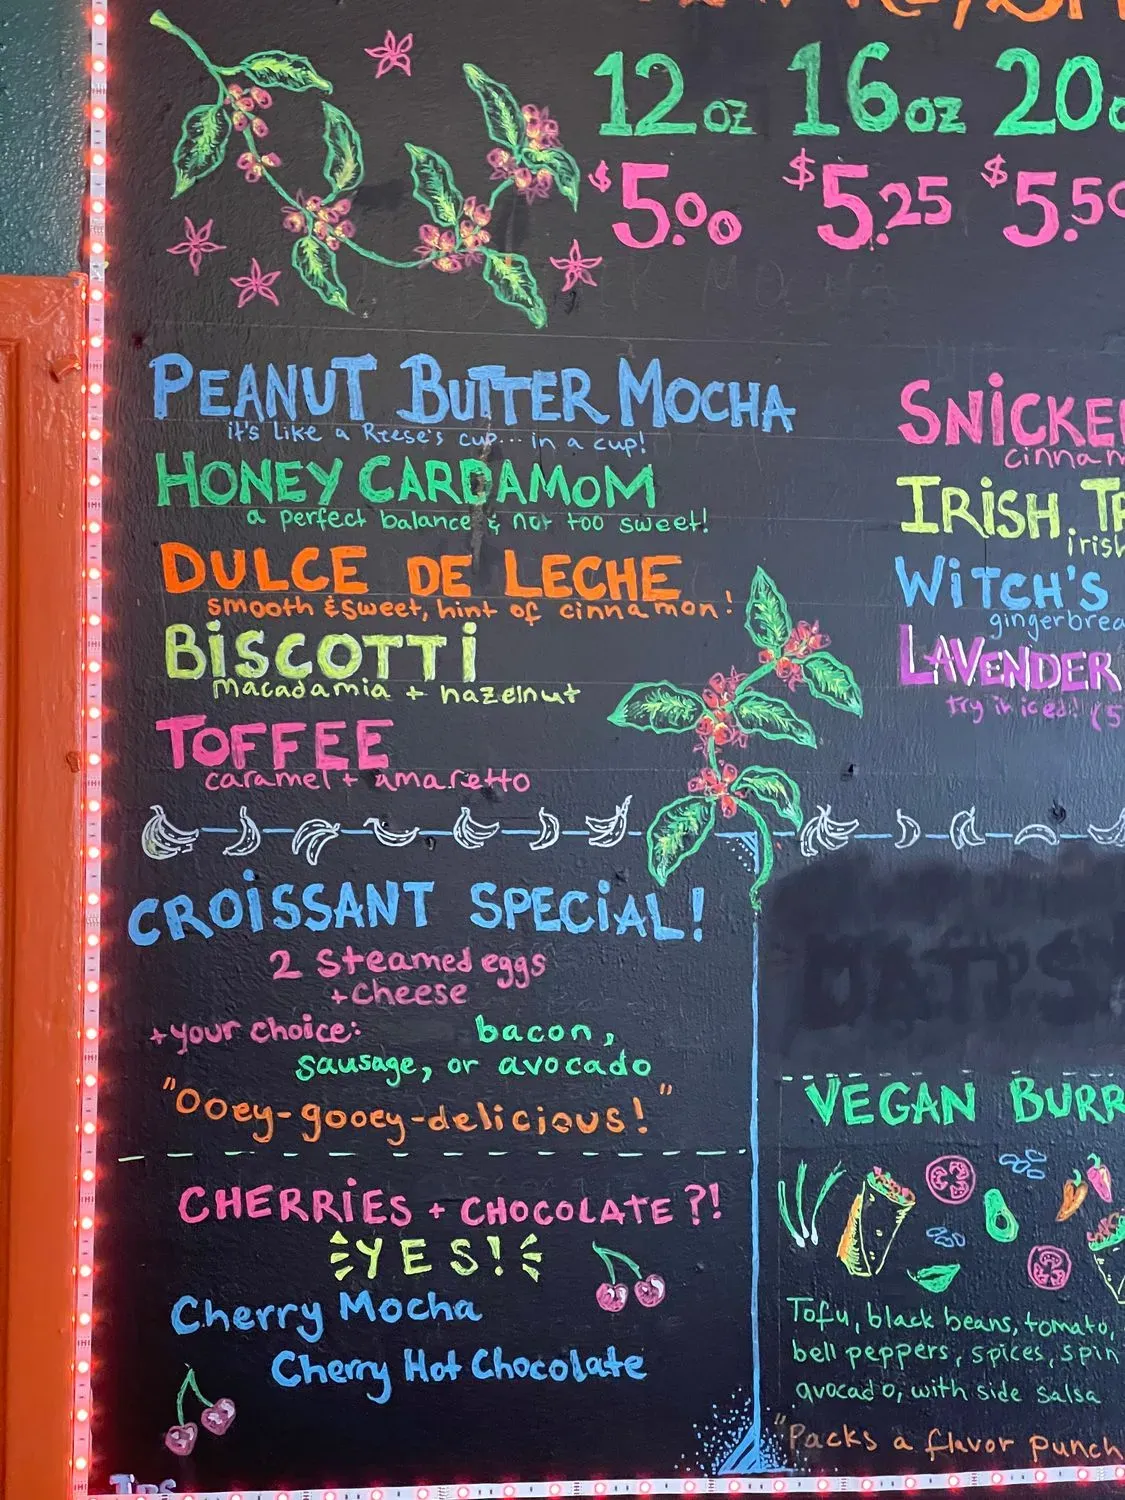 12oz 16oz 20
$5.00 $5.25 $5.50
PEANUT BUTTER MOCHA
it's like a Reese's cup... in a cup!
HONEY CARDAMOM
a perfect balance & not too sweet!
DULCE DE LECHE
smooth & sweet, hint of cinnamon!
BiSCOTTi
macadamia + hazelnut
TOFFEE
caramel + amaretto
IRISH
WiTCH'S
LAVENDER
try it iced! (5
CROiSSANT SPECiAL!
2 steamed eggs
+cheese
+your choice: bacon,
sausage, or avocado
"Ooey-gooey-delicious!"
CHERRiES + CHOCOLATE?!
YES!
Cherry Mocha
Cherry Hot Chocolate
TiPS
VEGAN
Tofu, black beans, tomato,
bell peppers, spices,
avocado, with side salsa
"Packs a flavor punch